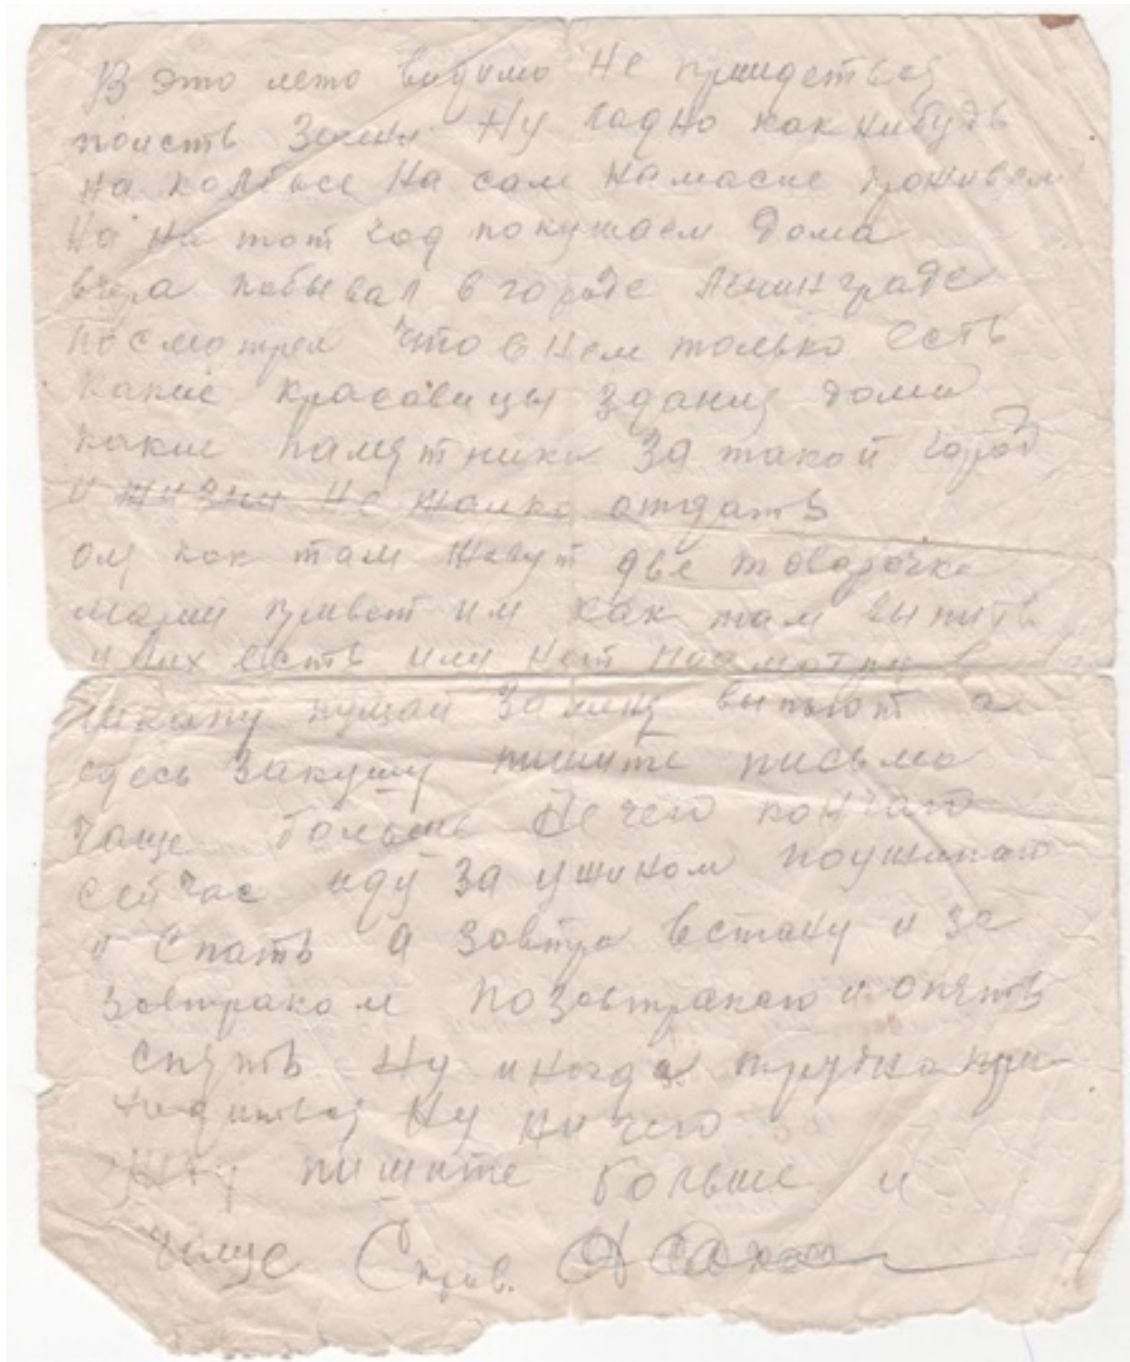 В это лето видимо не придеться
поисть Ну ладно как нибудь
на колбасе на сале на масле проживем
На тот год покушаем дома
вчера побывал в городе Ленинграде
посмотрел что в нем только есть
какие красавицы здания дома
какие памятники за такой город
и жизни не жалко отдать
как там живут две товарочки
привет им как там выпить
у них есть или нет посмотри в
пущай за меня выпьют а
здесь закушу пишите письма
чаще больше не чего кончаю
сейчас иду за ужином поужинаю
и спать а завтра встану и за
завтраком позавтракаю и опять
спять Ну иногда трудно при
ходиться Ну ни чего
Жду пишите больше и
чаще С прив.